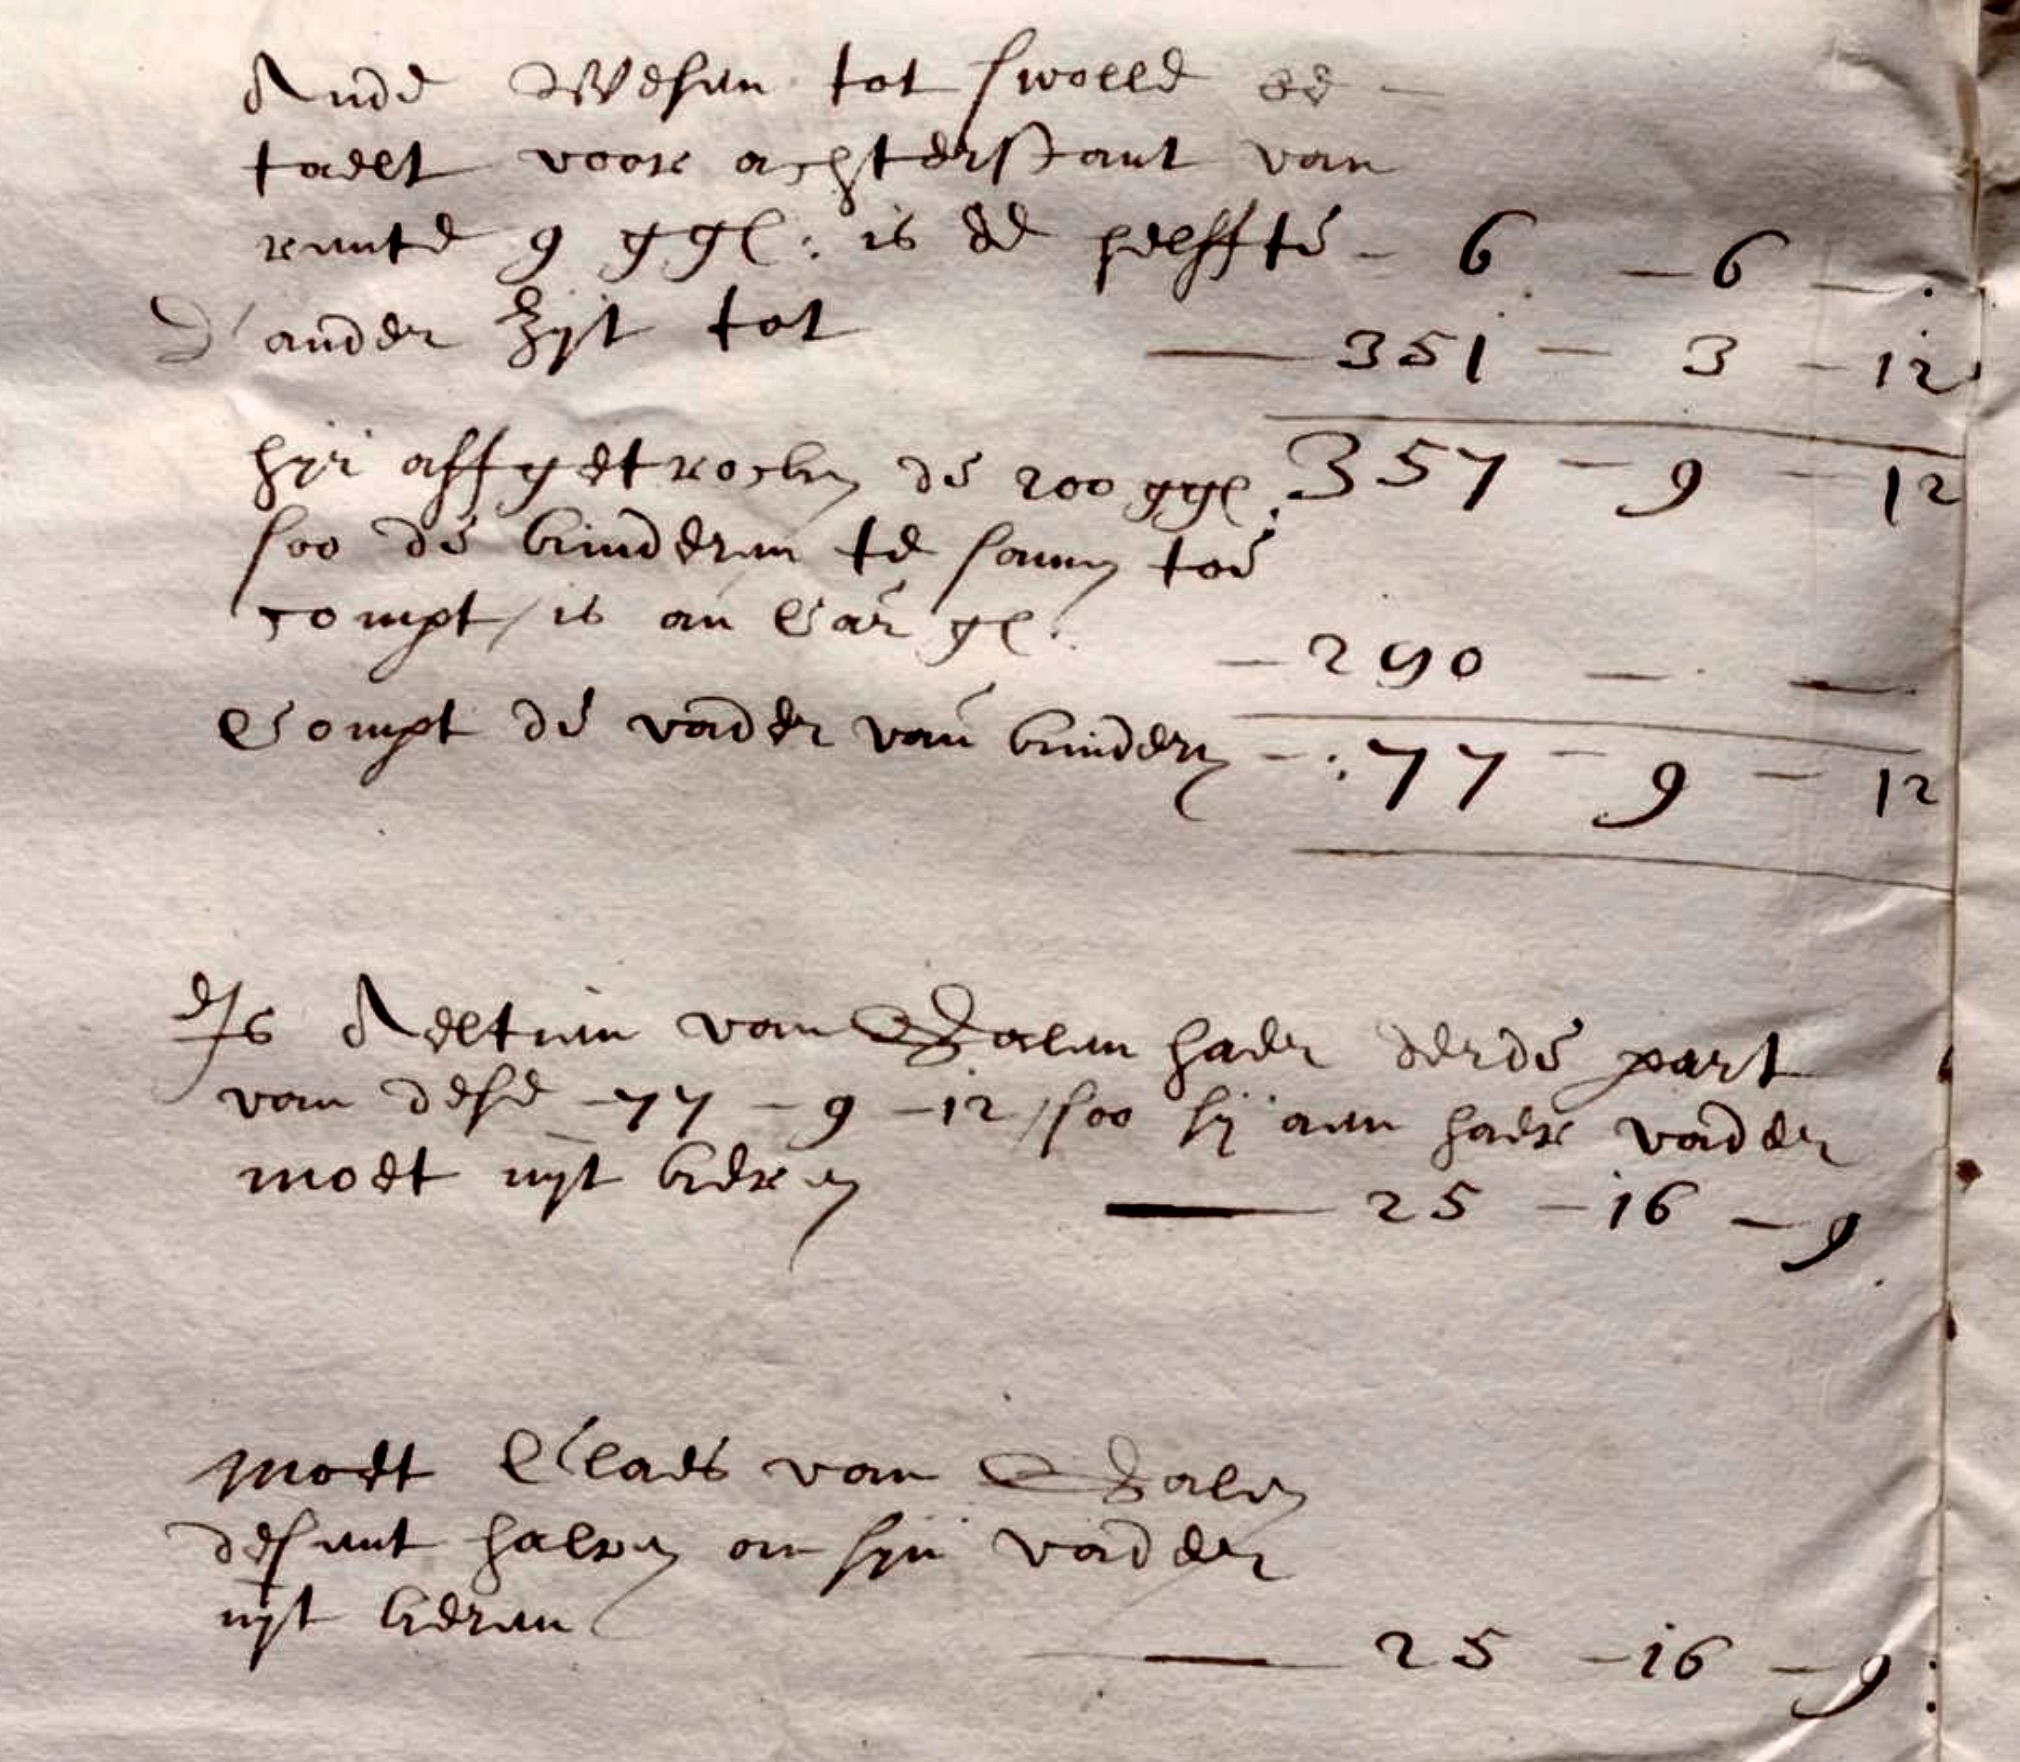 Ande Wesen tot Swolle be –
taelt voor achterstant van
rente 9 ggl: is de helffte – 6 – 6 – .
D'ander Zijt tot — 351 – 3 – 12
hijr affgetrocken de 200 ggl. 357 – 9 – 12
soo de kinderen te samen toe
compt / is an Car gl: – 290 – –
Compt de vader van kinderen – : 77 – 9 – 12
Is Aeltien van Galen haer derde part
van dese – 77 – 9 – 12 / soo sij aen haer vader
moet uijt keren — 25 – 16 – 9
moet Claes van Galen
desent halven an sijn vader
uijt keren — 25 – 16 – 9 :